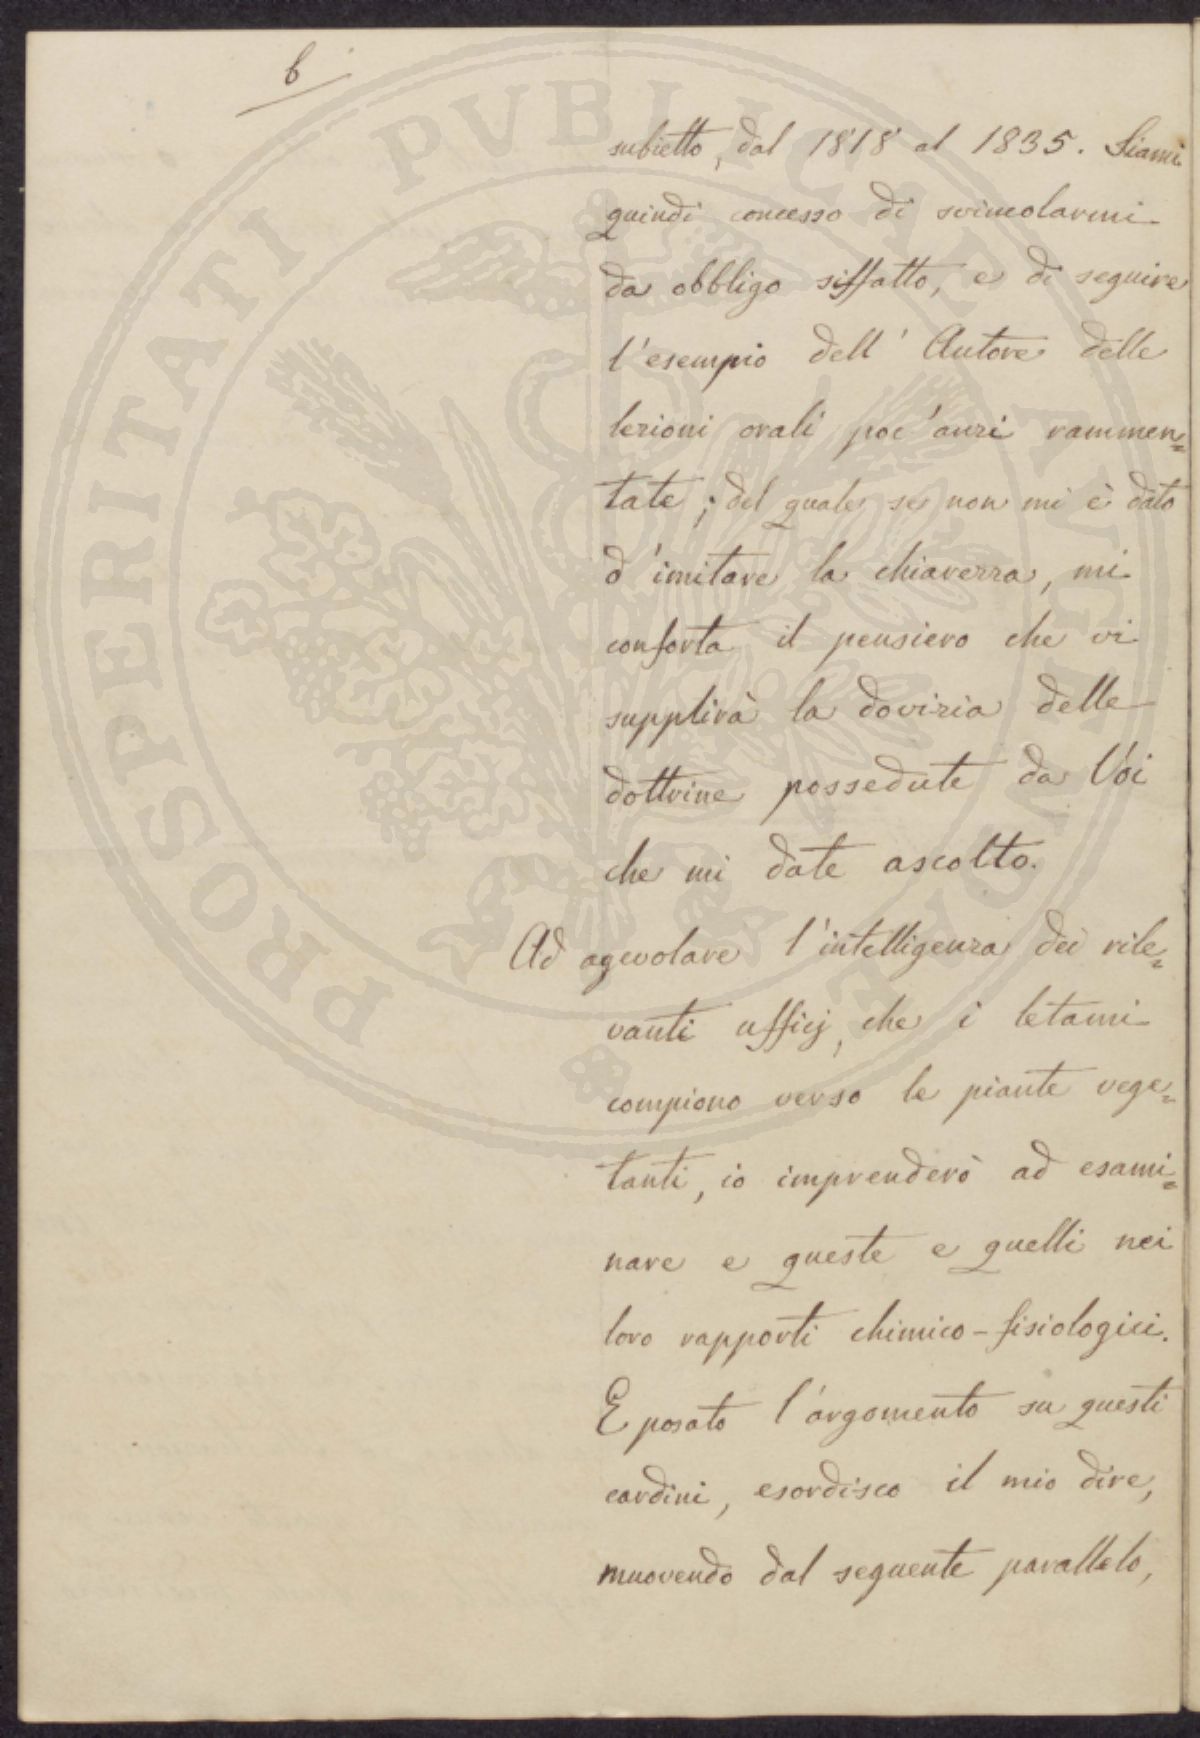 6
subietto, dal 1818 al 1835. Siami
quindi concesso di svincolarmi
da obbligo siffatto, e di seguire
l'esempio dell' Autore delle
lezioni orali poc'anzi rammen=
tate; del quale se non mi è dato
d'imitare la chiarezza, mi
conforta il pensiero che vi
supplirà la dovizia delle
dottrine possedute da Voi
che mi date ascolto.
Ad agevolare l'intelligenza dei rile=
vanti ufficj, che i letami
compiono verso le piante vege=
tanti, io imprenderò ad esami=
nare e queste e quelli nei
loro rapporti chimico-fisiologici.
E posato l'argomento su questi
cardini, esordisco il mio dire,
muovendo dal seguente parallelo,
PROSPERITATI PVBLICAE AVGENDAE